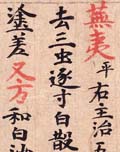 蕪荑平右主治五
去三虫逐寸白散
塗差又方和白沙